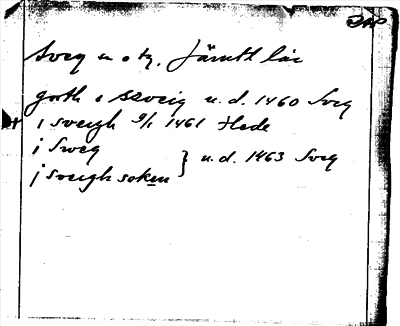 Sveg n o tg. Jämtl län
goth i szveig u. d. 1460 Sveg
i sveigh 9/1 1461 Hede
i Sweg } u. d. 1463 Sveg
j sveigh soken